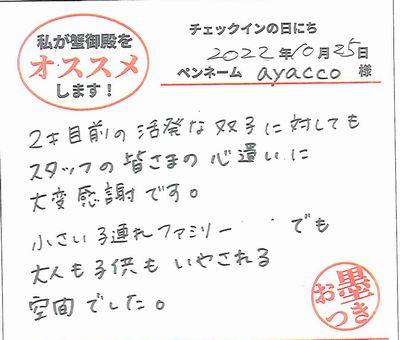 私が蟹御殿を
オススメ
します！
チェックインの日にち
2022年10月25日
ペンネーム ayacco 様
2才目前の活発な双子に対しても
スタッフの皆さまの心遣いに
大変感謝です。
小さい子連れファミリー でも
大人も子供もいやされる
空間でした。
お墨
つき